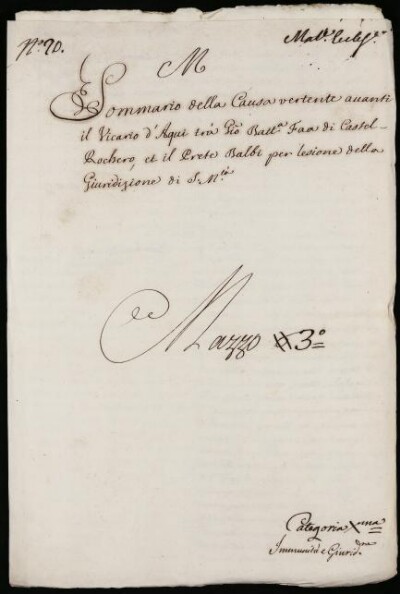 N.º 70.
Mat.e Eccles.e
M
Sommario della Causa vertente avanti
il Vicario d'Aqui trà Gio Batt.a Faa di Castel-
Rochero, et il Prete Balbi per lesione della
Giuridizione di S. M.tà
Mazzo 3.º
Categoria X.ma
Immunità e Giurid.